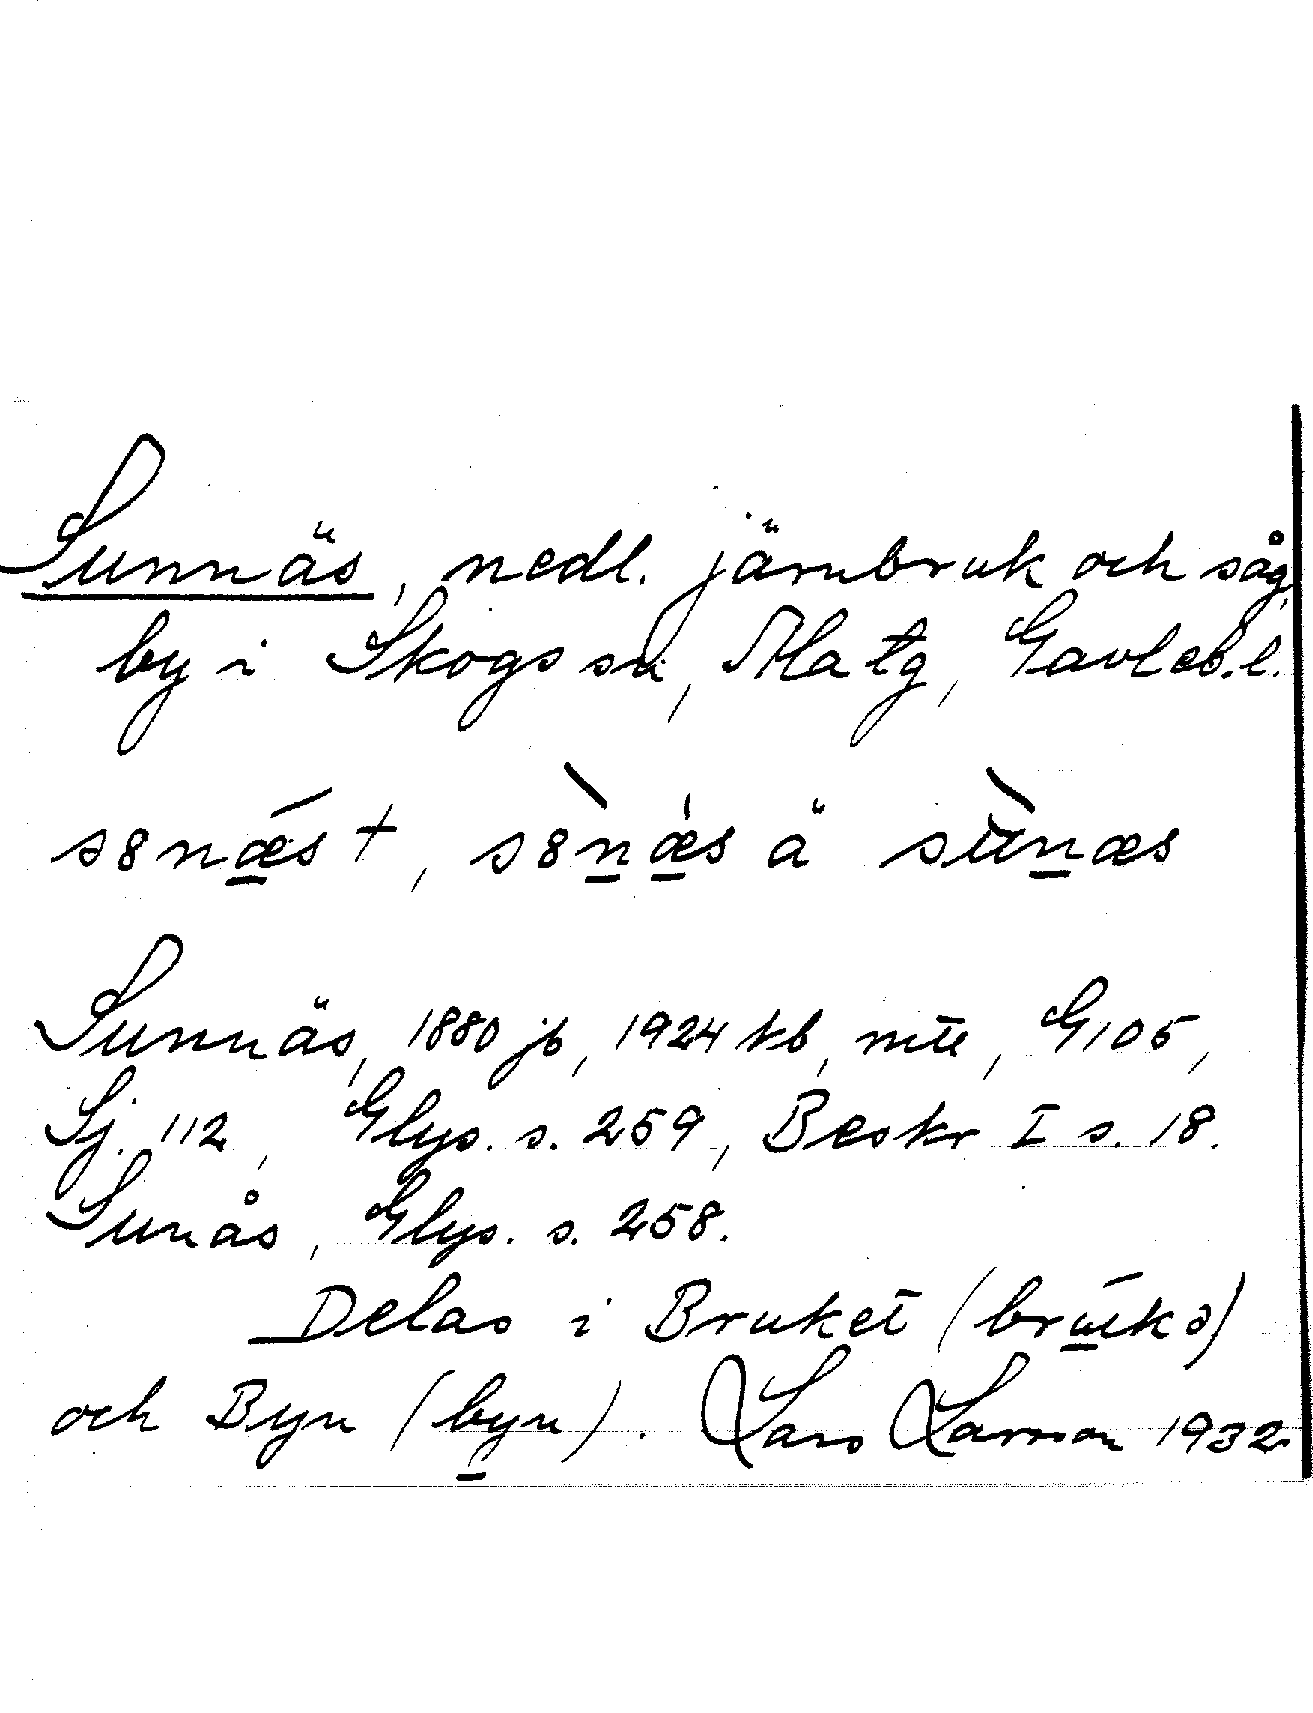 Sunnäs, nedl. järnbruk och såg,
by i Skogs sn, Ala tg, Gävleb. l.
s8næs +, s8næs ä sunæs
Sunnäs, 1880 jb, 1924 kb, mtl, G105,
Sj. 112, Glys. s. 259, Beskr I s. 18.
Sunås, Glys. s. 258.
Delas i Bruket (brukə)
och Byn (byn). Lars Larsson 1932